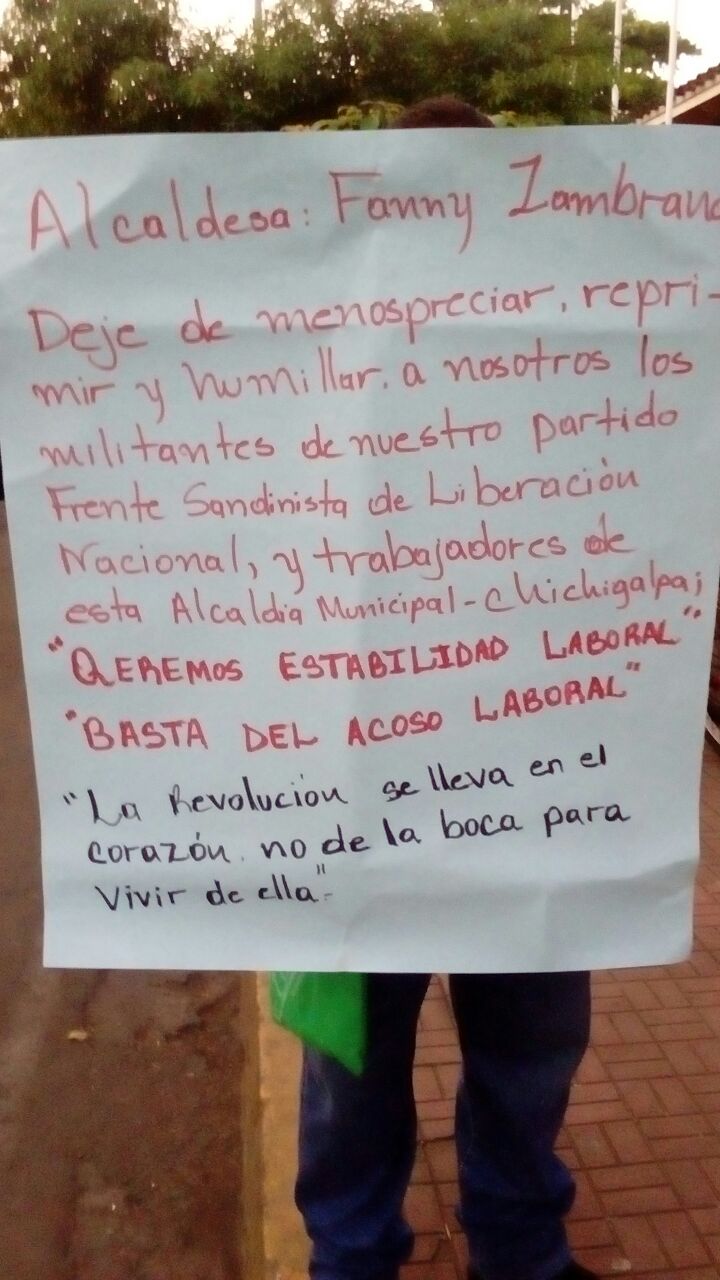 Alcaldesa: Fanny Zambrano
Deje de menospreciar, repri-
mir y humillar. a nosotros los
militantes de nuestro partido
Frente Sandinista de Liberación
Nacional, y trabajadores de
esta Alcaldia Municipal-Chichigalpa;
"QUEREMOS ESTABILIDAD LABORAL"
"BASTA DEL ACOSO LABORAL"
"La Revolución se lleva en el
corazón. no de la boca para
Vivir de ella".-